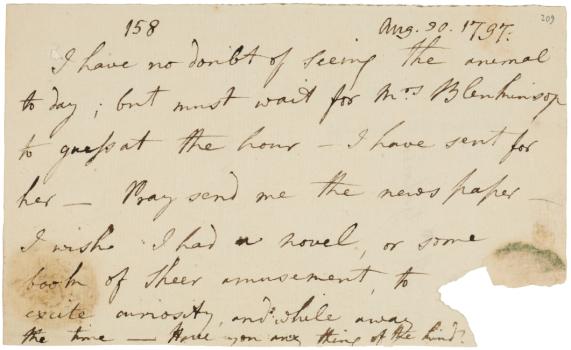 158
Aug. 30. 1797.
209
I have no doubt of seeing the animal
to day; but must wait for Mrs Blenkinsop
to guess at the hour – I have sent for
her – Pray send me the news paper –
I wish I had a novel, or some
book of sheer amusement, to
excite curiosity, and while away
the time – Have you any thing of the kind?